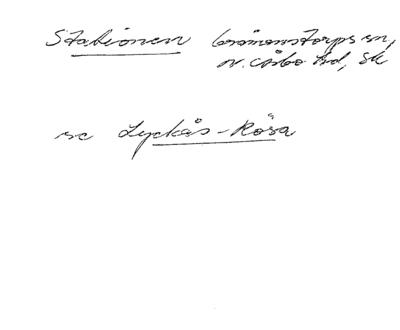 Stationen Grämanstorps sn,
N. Åsbo hd, Sk
se Lyckås-Rösa